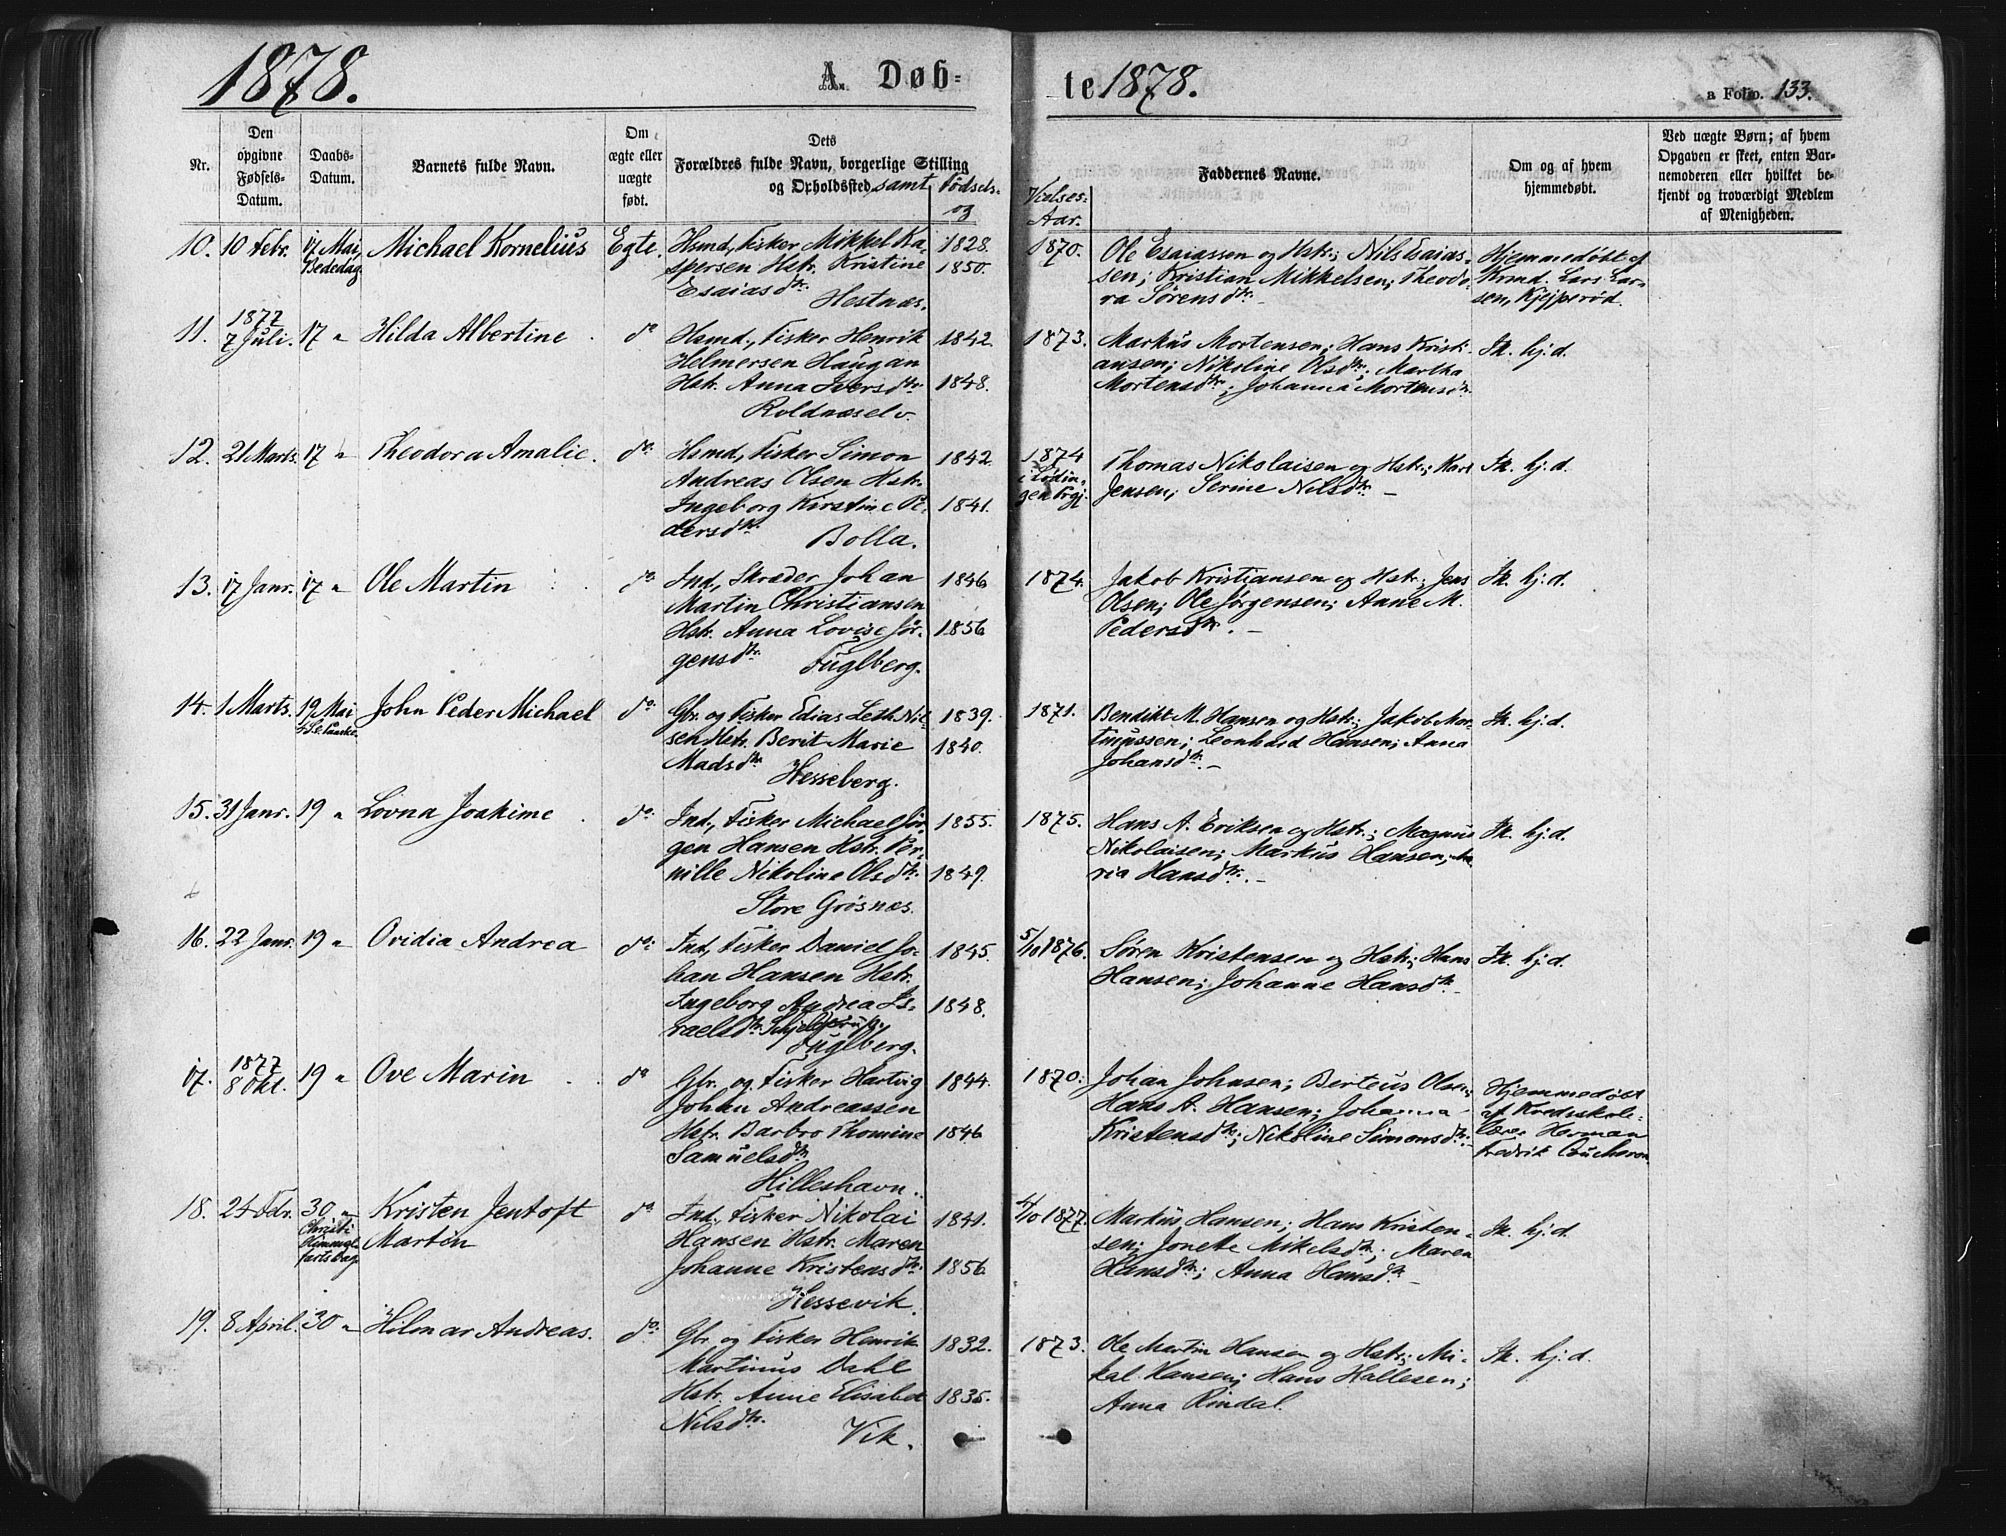 1878. A. Døb-
te 1878.
a Folio. 133.
Nr.
Den opgivne Fødsels-Datum.
Daabs-Datum.
Barnets fulde Navn.
Om ægte eller uægte født.
Dets Forældres fulde Navn, borgerlige Stilling og Opholdssted samt Fødsels- og
Vielses-Aar.
Faddernes Navne.
Om og af hvem hjemmedøbt.
Ved uægte Børn; af hvem Opgaven er skeet, enten Barnemoderen eller hvilket bekjendt og troværdigt Medlem af Menigheden.
10. 10 Febr. 17 Mai, Bededag Michael Kornelius Egte.
Hsmd., Fisker Mikkel Ka- 1828.
spersen Hstr. Kristine 1850.
Esaiasdtr.
Hestnæs.
1870.
Ole Esaiassen og Hstr.; Nils Esaias-
sen; Kristian Mikkelsen; Theodo-
ra Sørensdtr. –
Hjemmedøbt af
Krmd. Lars Lar-
sen, Kjejperød.
11. 1877 7 Juli. 17 " Hilda Albertine do
Hsmd., Fisker Henrik 1842.
Helmersen Haugan
Hstr. Anna Iversdtr. 1848.
Roldnæselv.
1873.
Markus Mortensen; Hans Kristi-
ansen; Nikoline Olsdtr.; Martha
Mortensdtr.; Johanna Mortensdtr.
Ik. hj. d.
12. 21 Marts. 17 " Theodora Amalie. do.
Hsmd., Fisker Simon 1842.
Andreas Olsen Hstr.
Ingeborg Kirstine Pe- 1841.
dersdtr.
Bolla.
1874
i Lødin-
gen Prgj.
Thomas Nikolaisen og Hstr.; Karl
Jensen; Serine Nilsdtr. –
Ik. hj. d.
13. 17 Janr. 17 " Ole Martin do.
Ind., Skræder Johan 1846
Martin Christiansen
Hstr. Anna Lovise Jør- 1856
gensdtr.
Fuglberg.
1874.
Jakob Kristiansen og Hstr.; Jens
Olsen; Ole Jørgensen; Anne M.
Pedersdtr. –
Ik. hj. d.
14. 1 Marts. 19 Mai 4 S. e. Paaske. John Peder Michael do.
Gbr. og Fisker Edias Leth Nil- 1839.
sen Hstr. Berit Marie 1840.
Madsdtr.
Hesseberg.
1871.
Bendikt M. Hansen og Hstr.; Jakob Mar-
tinussen; Leonhard Hansen; Anna
Johansdtr. –
Ik. hj. d.
15. 31 Janr. 19 " Lovna Joakime do.
Ind., Fisker Michael Jør- 1855.
gen Hansen Hstr. Per-
nille Nikoline Olsdtr. 1849.
Store Grøsnæs.
1875.
Hans A. Eriksen og Hstr.; Magnus
Nikolaisen; Markus Hansen; Ma-
ria Hansdtr. –
Ik. hj. d.
16. 22 Janr. 19 " Ovidia Andrea do:
Ind., Fisker Daniel Jo- 1845.
han Hansen Hstr.
Ingeborg Andrea Is- 1848.
raelsdtr.
Fuglberg.
5/10 1876.
Søren Kristensen og Hstr.; Hans
Hansen; Johanne Hansdtr. –
Ik. hj. d.
17. 1877 8 Okt. 19 " Ove Marin do
Gbr. og Fisker Hartvig 1844.
Johan Andreassen
Hstr. Barbro Thomine 1846
Samuelsdtr.
Hilleshavn.
1870.
Johan Johnsen; Berteus Olsen;
Hans A. Hansen; Johanna
Kristensdtr.; Nikoline Simonsdtr. –
Hjemmedøbt
af Kredsskole-
lærer Herman
Fredrik Coucheron
18. 24 Febr. 30 " Christi Himmelfartsdag Kristen Jentoft do
Martin
Ind., Fisker Nikolai 1841.
Hansen Hstr. Maren
Johanne Kristensdtr. 1856.
Hessevik.
4/10 1877.
Markus Hansen; Hans Kristen-
sen; Jonette Mikelsdtr.; Maren
Hansdtr.; Anna Hansdtr. –
Ik. hj. d.
19. 8 April. 30 " Hilmar Andreas. do.
Gbr. og Fisker Henrik 1832.
Martinus Dahl
Hstr. Anne Elisabet 1835.
Nilsdtr.
Vik.
1873.
Ole Martin Hansen og Hstr.; Mi-
kal Hansen; Hans Hallesen;
Anna Rindal.
Ik. hj. d.